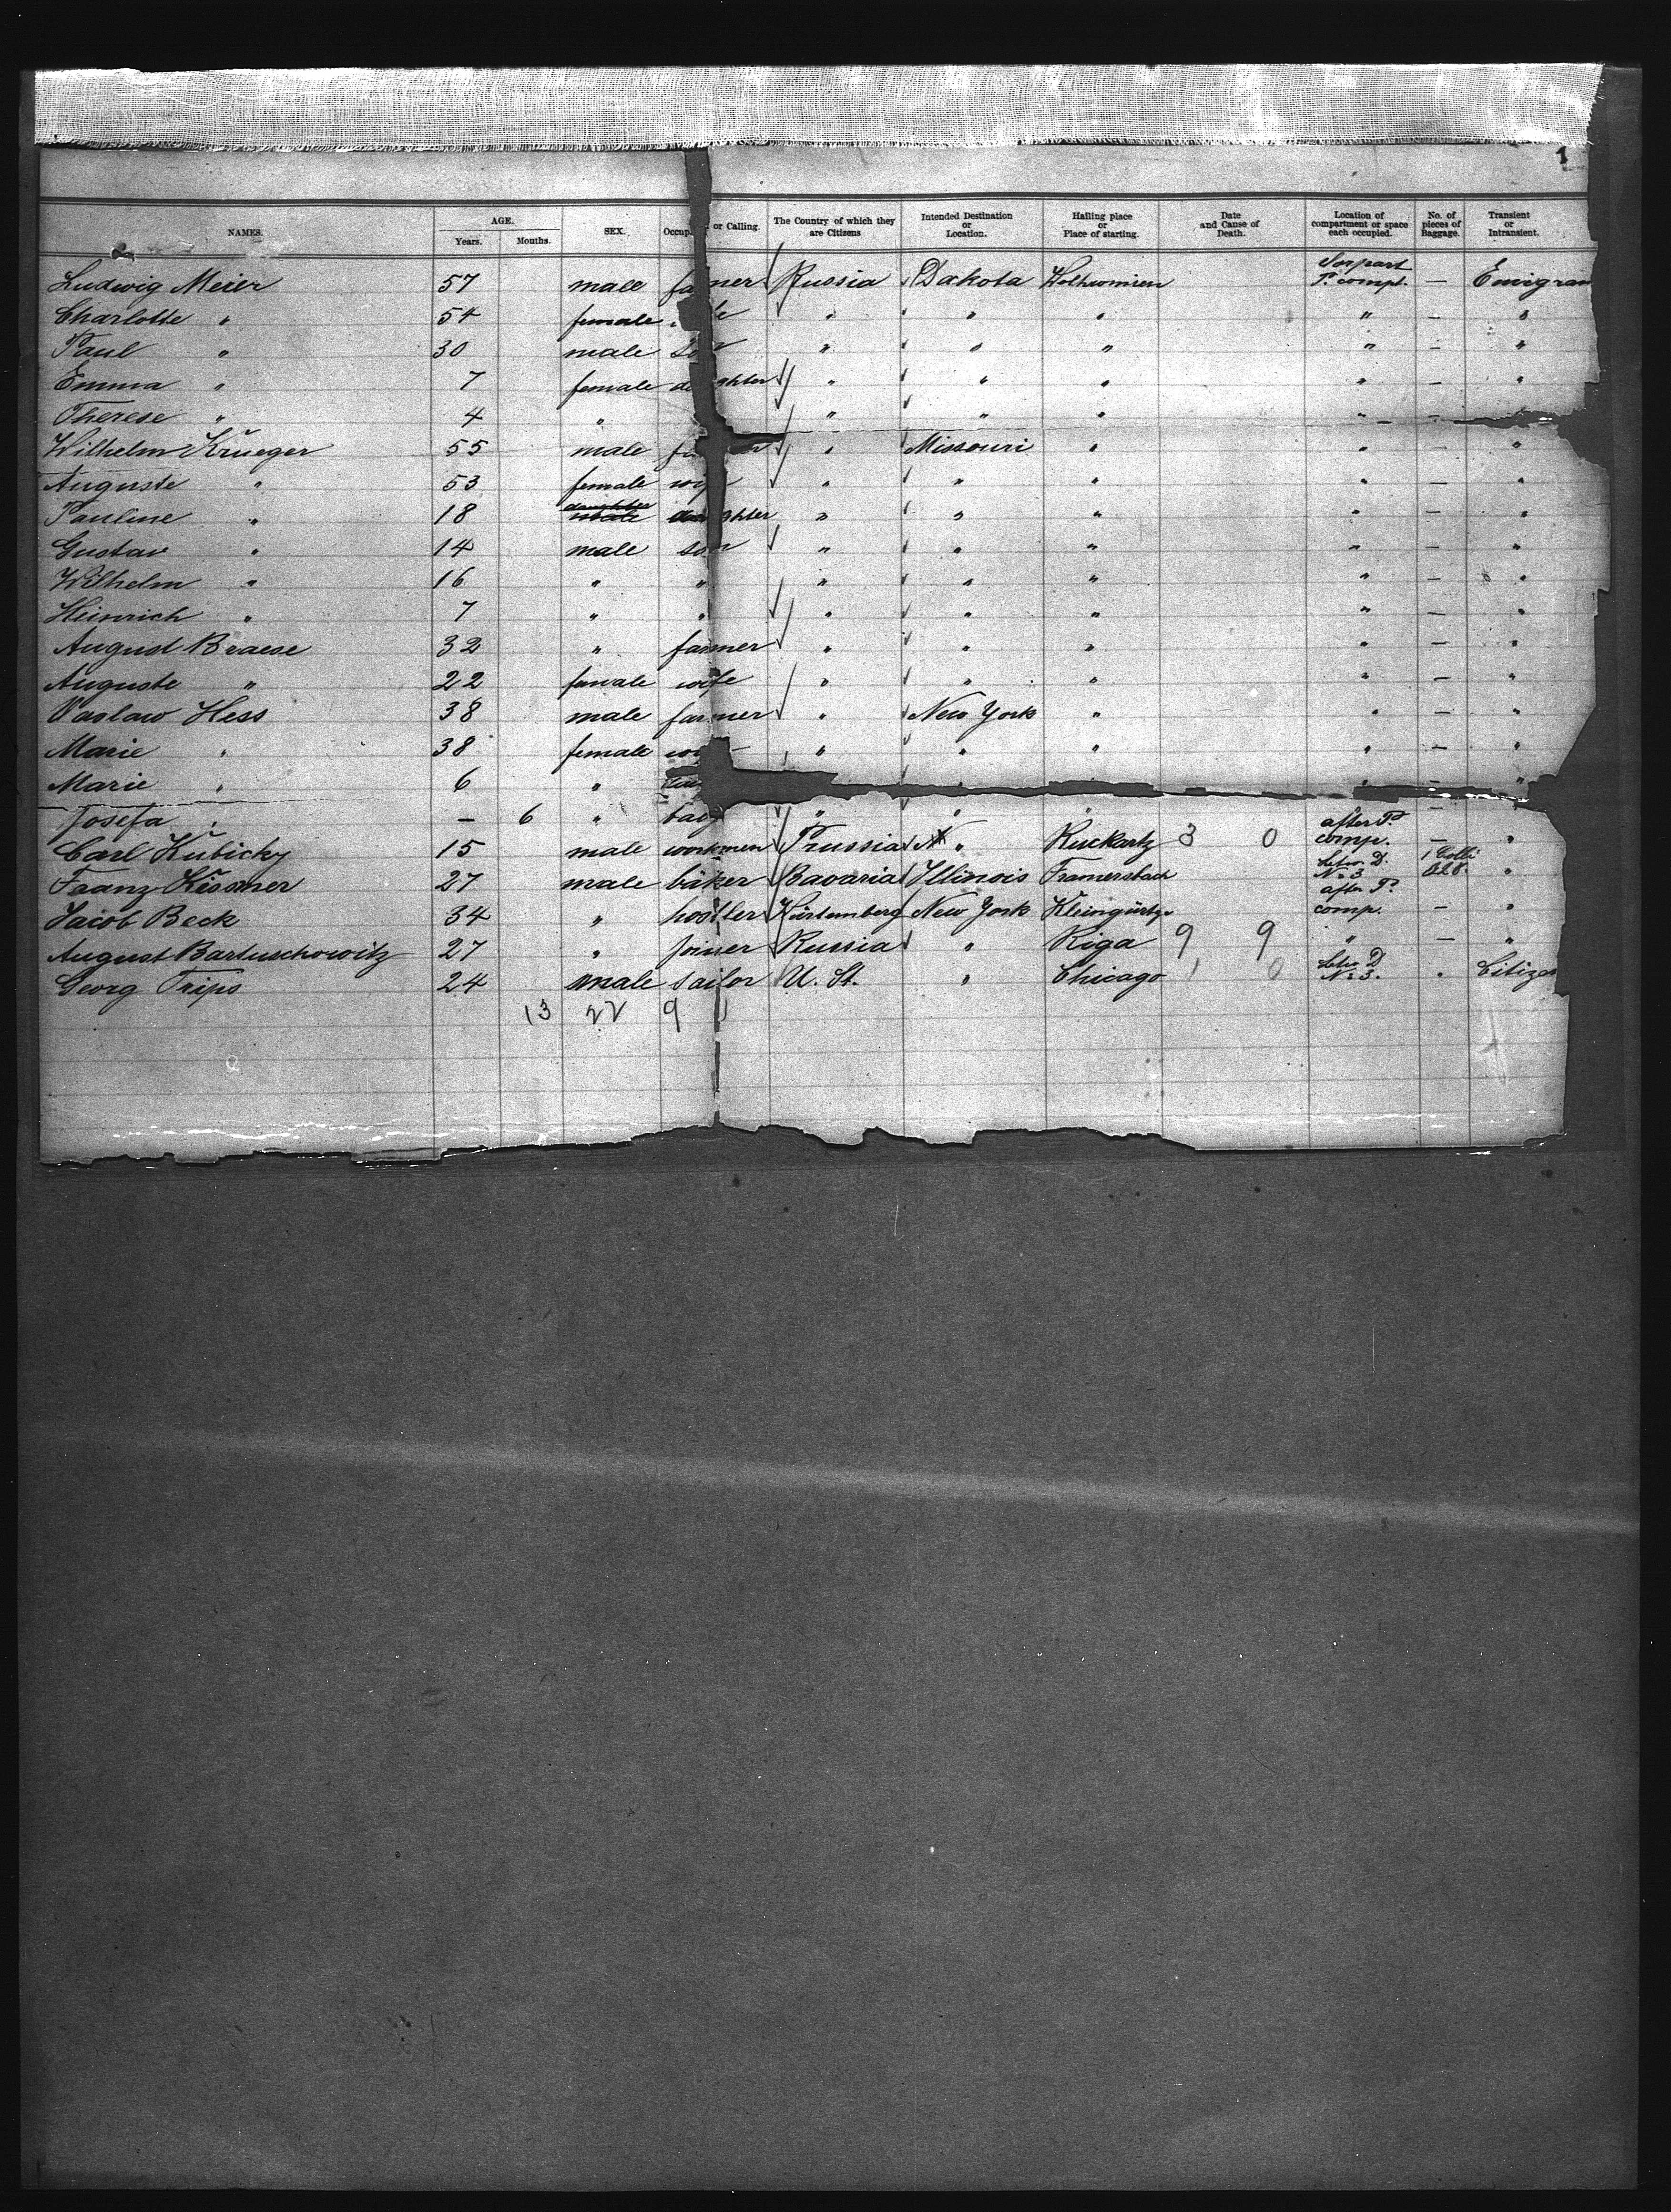 1
NAMES. AGE. Years. Months. SEX. Occup or Calling. The Country of which they are Citizens Intended Destination or Location. Hailing place or Place of starting. Date and Cause of Death. Location of compartment or space each occupied. No. of pieces of Baggage. Transient or Intransient.
Ludwig Meier 57 male fa mer Russia Dakota P. compt. — Emigran
Charlotte " 54 female " " " " — "
Paul " 30 male so " " " " — "
Emma " 7 female da ghter " " " " — "
Therese " 4 " " " " " - "
Wilhelm Krueger 55 male fa " Missouri " " — "
Auguste " 53 female wif " " " " — "
Pauline " 18 daughter dau ghter " " " " — "
Gustav " 14 male son " " " " — "
Wilhelm " 16 " " " " " " — "
Heinrich " 7 " " " " " " — "
August Braese 32 " farmer " " " " — "
Auguste " 22 female wife " " " " — "
Vaslaw Hess 38 male farmer " New York " " — "
Marie " 38 female " " " " — "
Marie " 6 " " " —  "
Josefa " — 6 " " " " —
Carl Kubicky 15 male workmen Prussia " Ruckartz 3 0 after P. comp. — "
Franz Kissner 27 male bäker Bavaria Illinois Framersbach D. No 3 1 Colli "
Jacob Beck 34 " hostler Würtemberg New York after P. comp. — "
August Bartuschowitz 27 " joiner Russia " Riga 9 9 " — "
Georg Trips 24 male sailor U. St. " Chicago 1 0 D No 3. " Citizen
13 22 9